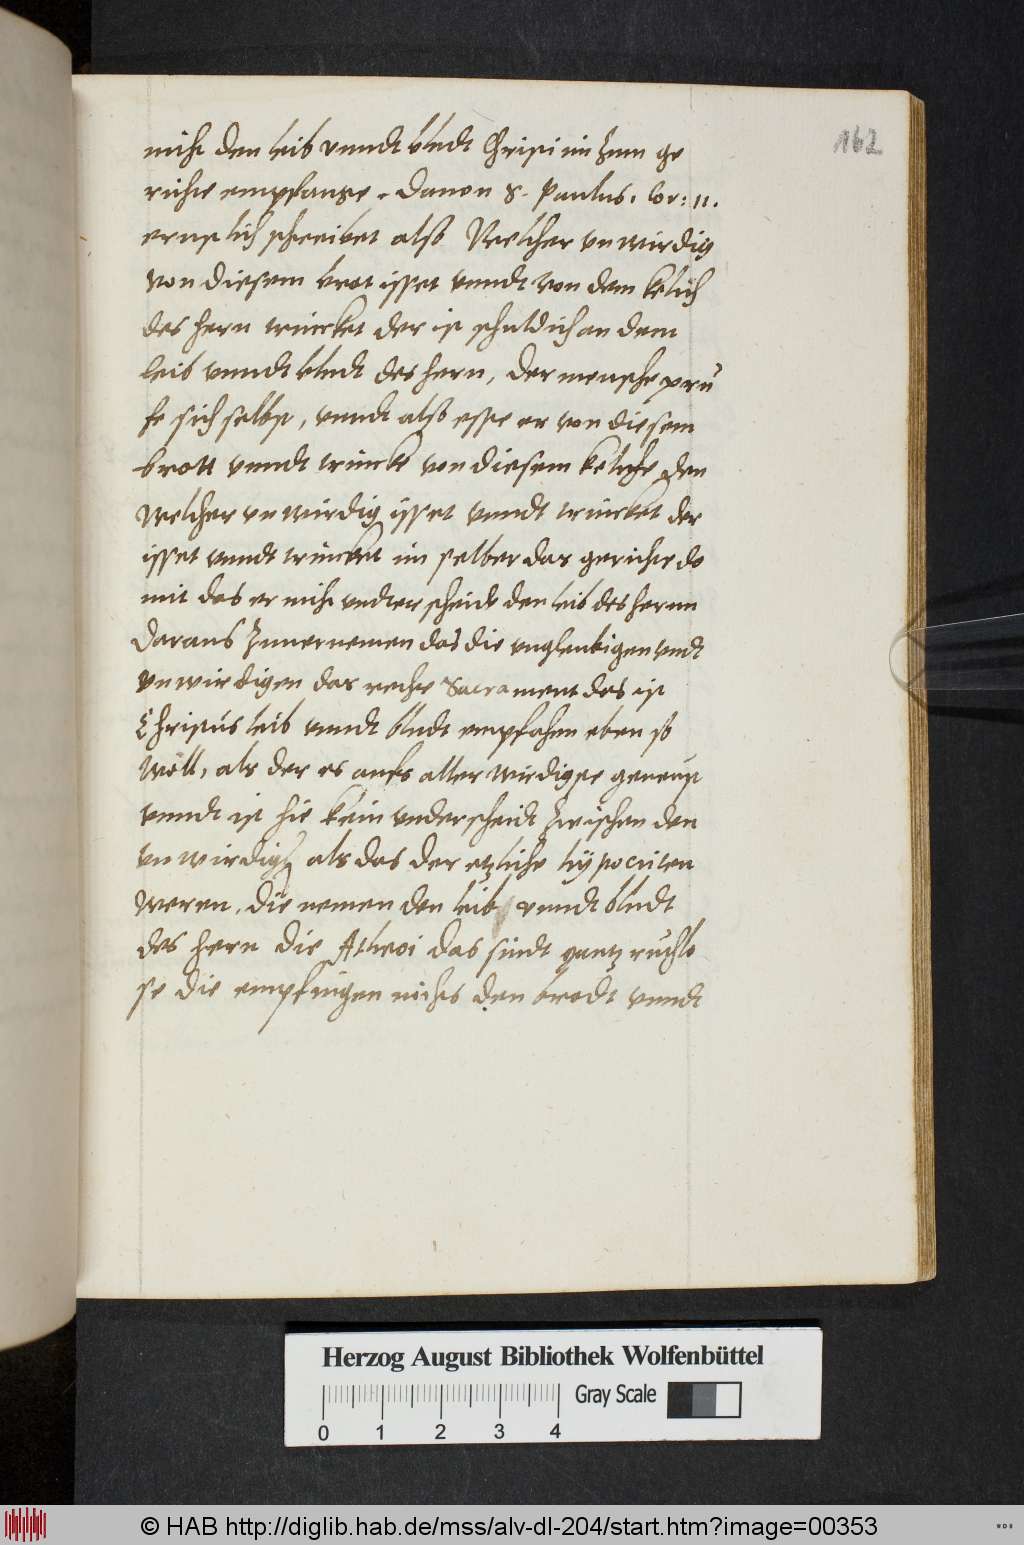 162
nicht den leib vnndt bludt Christi im zum ge
richte empfange. Dauon S. Paulus. Cor: 11.
ernstlich schreibet also Welcher vnwirdig
von diesem brot isset vnndt von dem kelich
des hern trincket der ist schuldich an dem
leib vnndt bludt des hern, Der mensche prü
fe sich selbst, vnndt also esse er von diesem
brott vnndt trincke von diesem keliche den
Welcher vnwirdig isset vnndt trincket der
isset vnndt trincket im selber das gerichte do
mit das er nicht vndterscheide den leib des hernn
Daraus zuuernemen das die vngleubigen vndt
vnwirdigen das rechte Sacrament des ist
Christus leib vnndt bludt empfahen eben so
woll, als der es aufs aller wirdigste geneust
vnndt ist hie kein vnderscheidt zwischen den
vnwirdigen als das der etzliche hÿpocriten
weren, die nemen den leib vnndt bludt
des hern die Atheoi das sindt gantz ruchlo
se die empfingen nichts den brodt vnndt
Herzog August Bibliothek Wolfenbüttel
0 1 2 3 4 Gray Scale
© HAB http://diglib.hab.de/mss/alv-dl-204/start.htm?image=00353